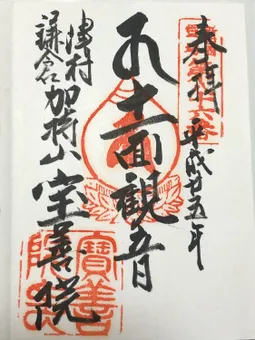 奉拝 平成廿五年
十一面観音
津村
鎌倉 加持山 宝善院
寶善